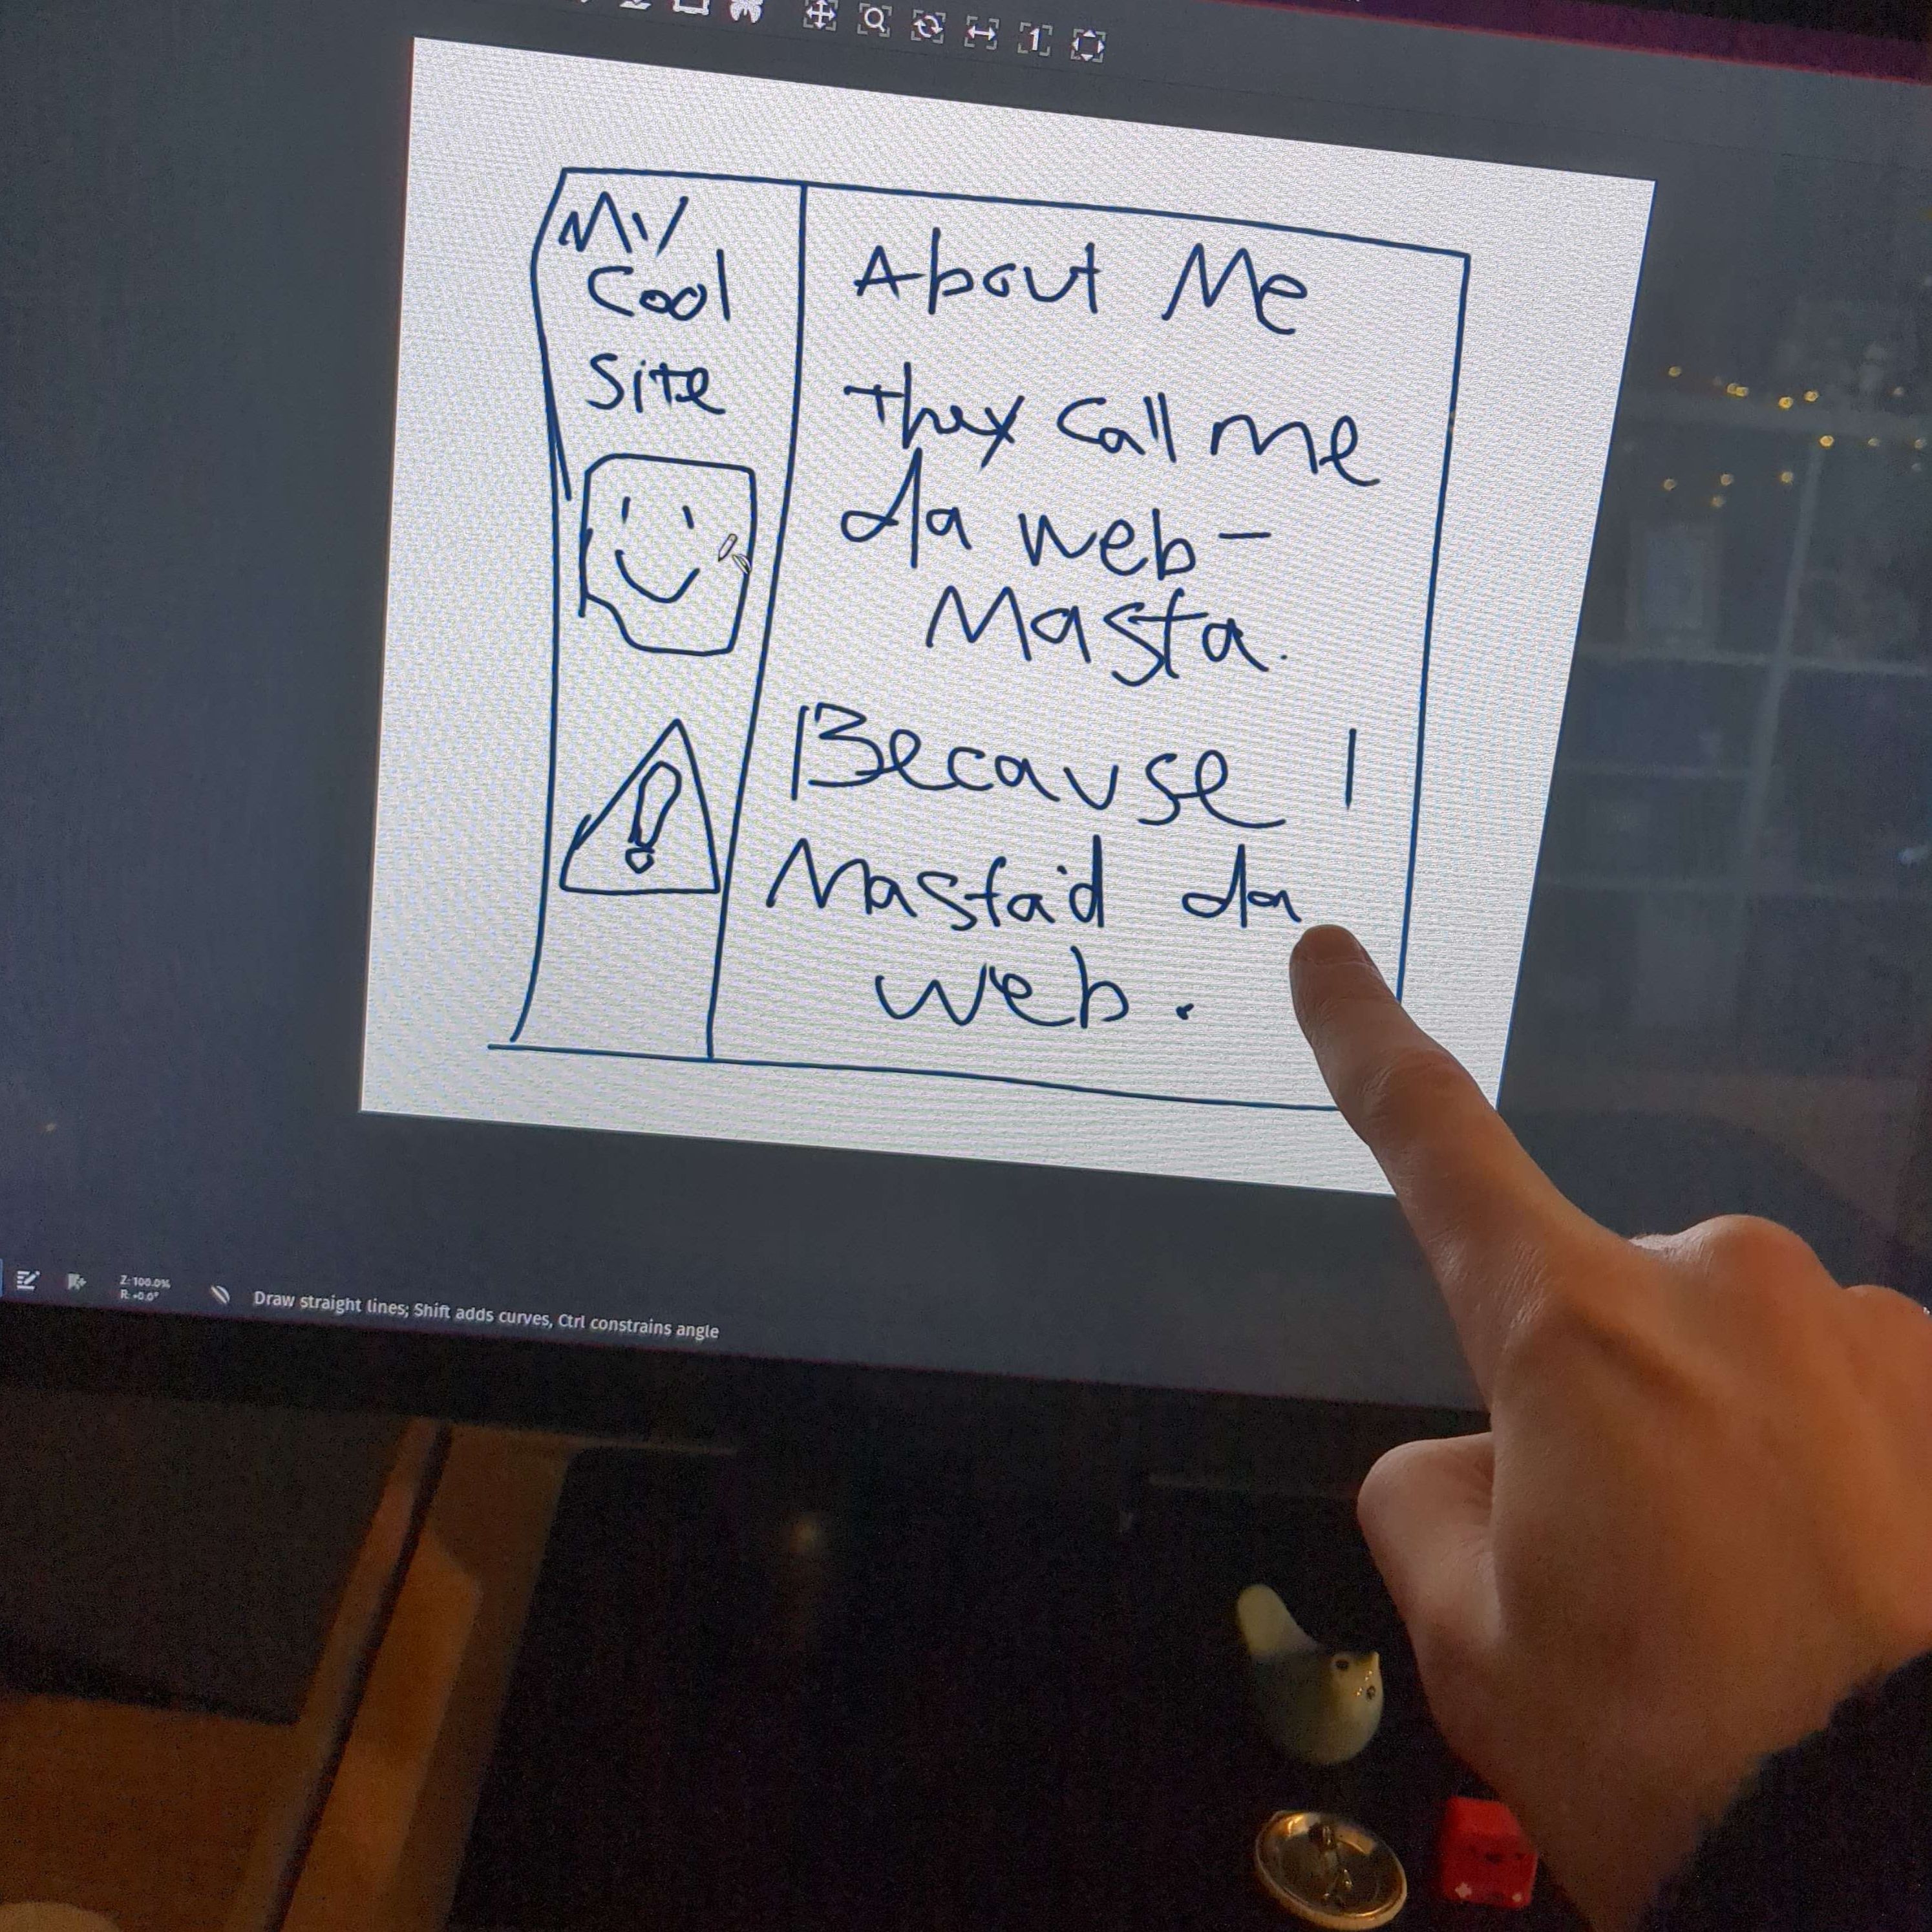 My
Cool
Site
About Me
They call me
da web-
Masta.
Because I
Masta'd da
web.
Z: 100.0%
R: +0.0°
Draw straight lines; Shift adds curves, Ctrl constrains angle